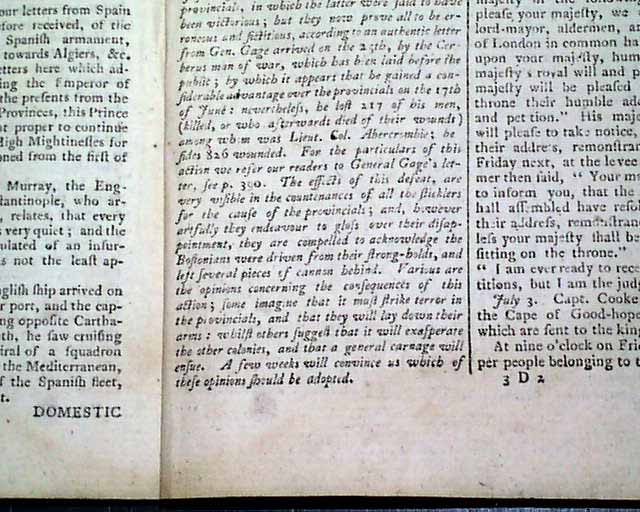 our letters from Spain
fore received, of the
Spanish armament,
towards Algiers, &c.
etters here which ad-
ing the Emperor of
the presents from the
Provinces, this Prince
t proper to continue
High Mightinesses for
oned from the first of
Murray, the Eng-
tantinople, who ar-
, relates, that every
s very quiet; and the
ulated of an insur-
s not the least ap-
nglish ship arrived on
r port, and the cap-
ng opposite Cartha-
th, he saw cruising
iral of a squadron
the Mediterranean,
f the Spanish fleet,
t.
DOMESTIC
provincials, in which the latter were said to have
been victorious; but they now prove all to be er-
roneous and fictitious, according to an authentic letter
from Gen. Gage arrived on the 25th, by the Cer-
berus man of war, which has been laid before the
public; by which it appears that he gained a con-
siderable advantage over the provincials on the 17th
of June: nevertheless, he lost 217 of his men,
(killed, or who afterwards died of their wounds)
among whom was Lieut. Col. Abercrombie; be-
sides 826 wounded. For the particulars of this
action we refer our readers to General Gage's let-
ter, see p. 390. The effects of this defeat, are
very visible in the countenances of all the sticklers
for the cause of the provincials; and, however
artfully they endeavour to gloss over their disap-
pointment, they are compelled to acknowledge the
Bostonians were driven from their strong-holds, and
left several pieces of cannon behind. Various are
the opinions concerning the consequences of this
action; some imagine that it must strike terror in
the provincials, and that they will lay down their
arms: whilst others suggest that it will exasperate
the other colonies, and that a general carnage will
ensue. A few weeks will convince us which of
these opinions should be adopted.
majesty in the following
please your majesty, we
lord-mayor, aldermen, an
of London in common ha
upon your majesty, hum
majesty's royal will and p
majesty will be pleased
throne their humble ad
and petition." His maj
will please to take notice,
their address, remonstran
Friday next, at the levee
mer then said, "Your ma
to inform you, that the
hall assembled have resol
their address, remonstran
less your majesty shall be
sitting on the throne."
"I am ever ready to rece
titions, but I am the judg
July 3. Capt. Cooke
the Cape of Good-hope
which are sent to the king
At nine o'clock on Frid
per people belonging to t
3 D 2